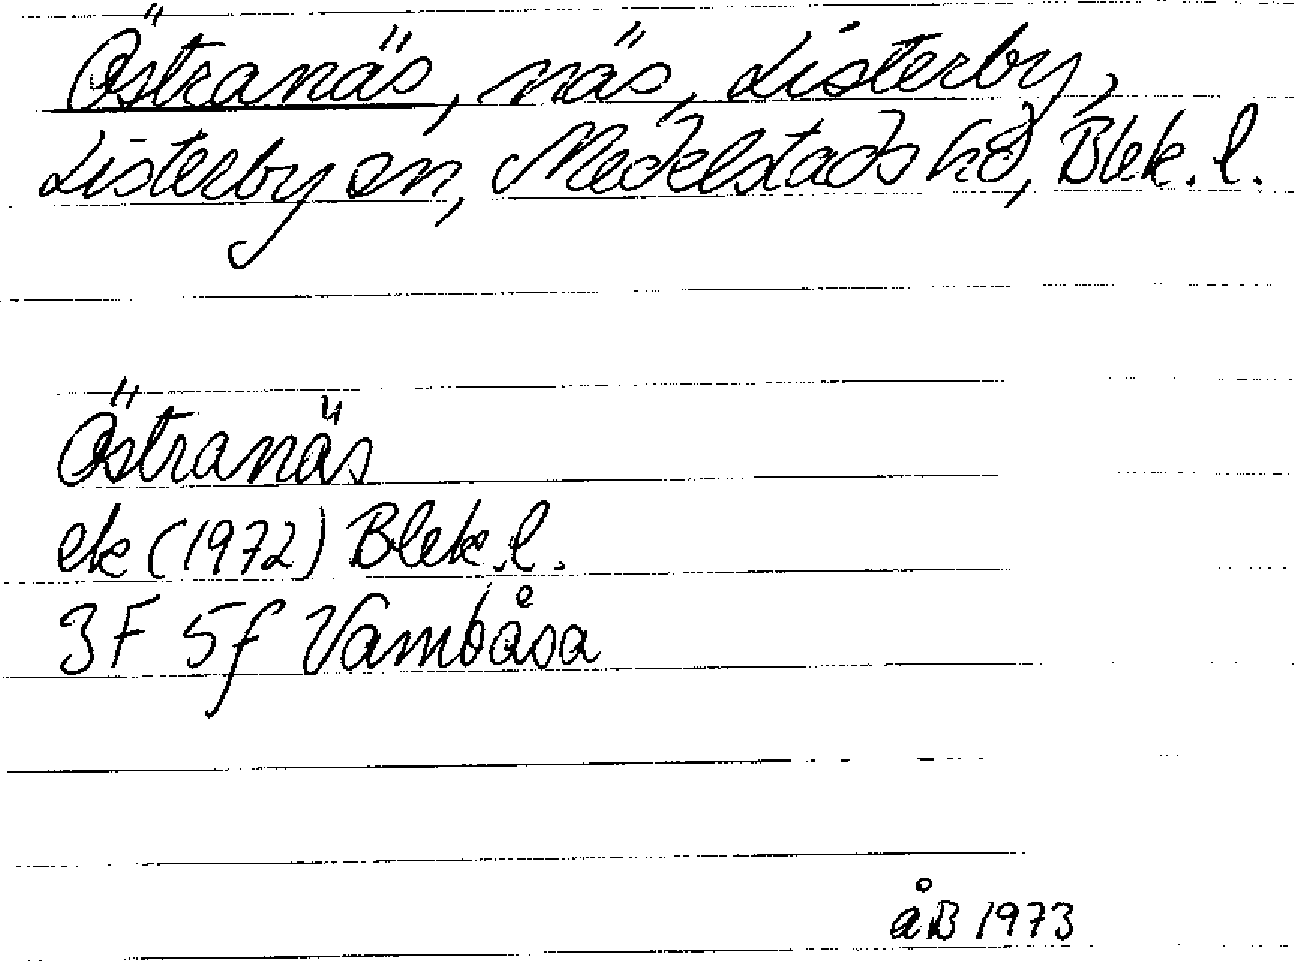 Östranäs, näs, Listerby,
Listerby sn, Medelstads hd, Blek. l.
Östranäs
ek (1972) Blek. l.
3F 5f Vambåsa
åB 1973